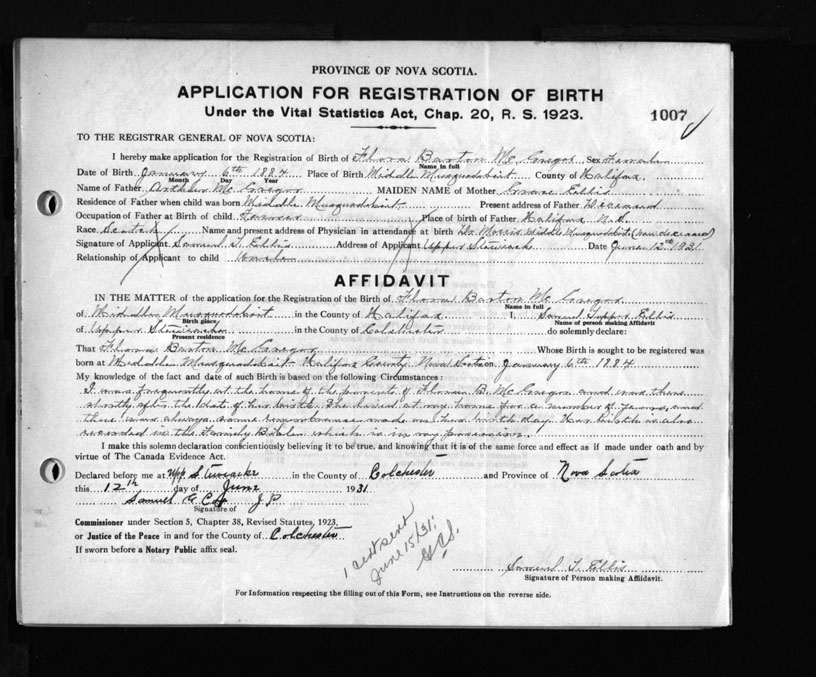 PROVINCE OF NOVA SCOTIA.
APPLICATION FOR REGISTRATION OF BIRTH
Under the Vital Statistics Act, Chap. 20, R. S. 1923.
1007
TO THE REGISTRAR GENERAL OF NOVA SCOTIA:
I hereby make application for the Registration of Birth of Flora Barton Mc Gregor Sex Female
Name in full
Date of Birth January 6th 1884 Place of Birth Middle Musquodoboit County of Halifax
Month Day Year
Name of Father Arthur Mc Gregor MAIDEN NAME of Mother Ellis
Residence of Father when child was born Middle Musquodoboit Present address of Father Deceased
Occupation of Father at Birth of child Farmer Place of birth of Father Halifax N.S.
Race Scotch Name and present address of Physician in attendance at birth Dr. Morris Middle Musquodoboit (now deceased)
Signature of Applicant Samuel T. Ellis Address of Applicant Upper Stewiacke Date June 12th 1931
Relationship of Applicant to child
AFFIDAVIT
IN THE MATTER of the application for the Registration of the Birth of Flora Barton Mc Gregor
Name in full
of Middle Musquodoboit in the County of Halifax I, Samuel Tupper Ellis
Birth place
Name of person making Affidavit
of Upper Stewiacke in the County of Colchester do solemnly declare:
Present residence
That Flora Barton Mc Gregor Whose Birth is sought to be registered was
born at Middle Musquodoboit Halifax County Nova Scotia on January 6th 1884
My knowledge of the fact and date of such Birth is based on the following Circumstances:
I was frequently at the home of the parents of Flora B. McGregor and was there
shortly after the date of her birth. She lived at my home for a number of years, and
there was always some made on her birth day. Her birth is also
recorded in the Family Bible which is in my possession.
I make this solemn declaration conscientiously believing it to be true, and knowing that it is of the same force and effect as if made under oath and by
virtue of The Canada Evidence Act.
Declared before me at Upp Stewiacke in the County of Colchester and Province of Nova Scotia
this 12th day of June 1931
Samuel A. Cox J P
Signature of
Commissioner under Section 5, Chapter 38, Revised Statutes, 1923.
or Justice of the Peace in and for the County of Colchester
If sworn before a Notary Public affix seal.
1 cert sent
June 15/31.
Samuel T. Ellis
Signature of Person making Affidavit.
For Information respecting the filling out of this Form, see Instructions on the reverse side.